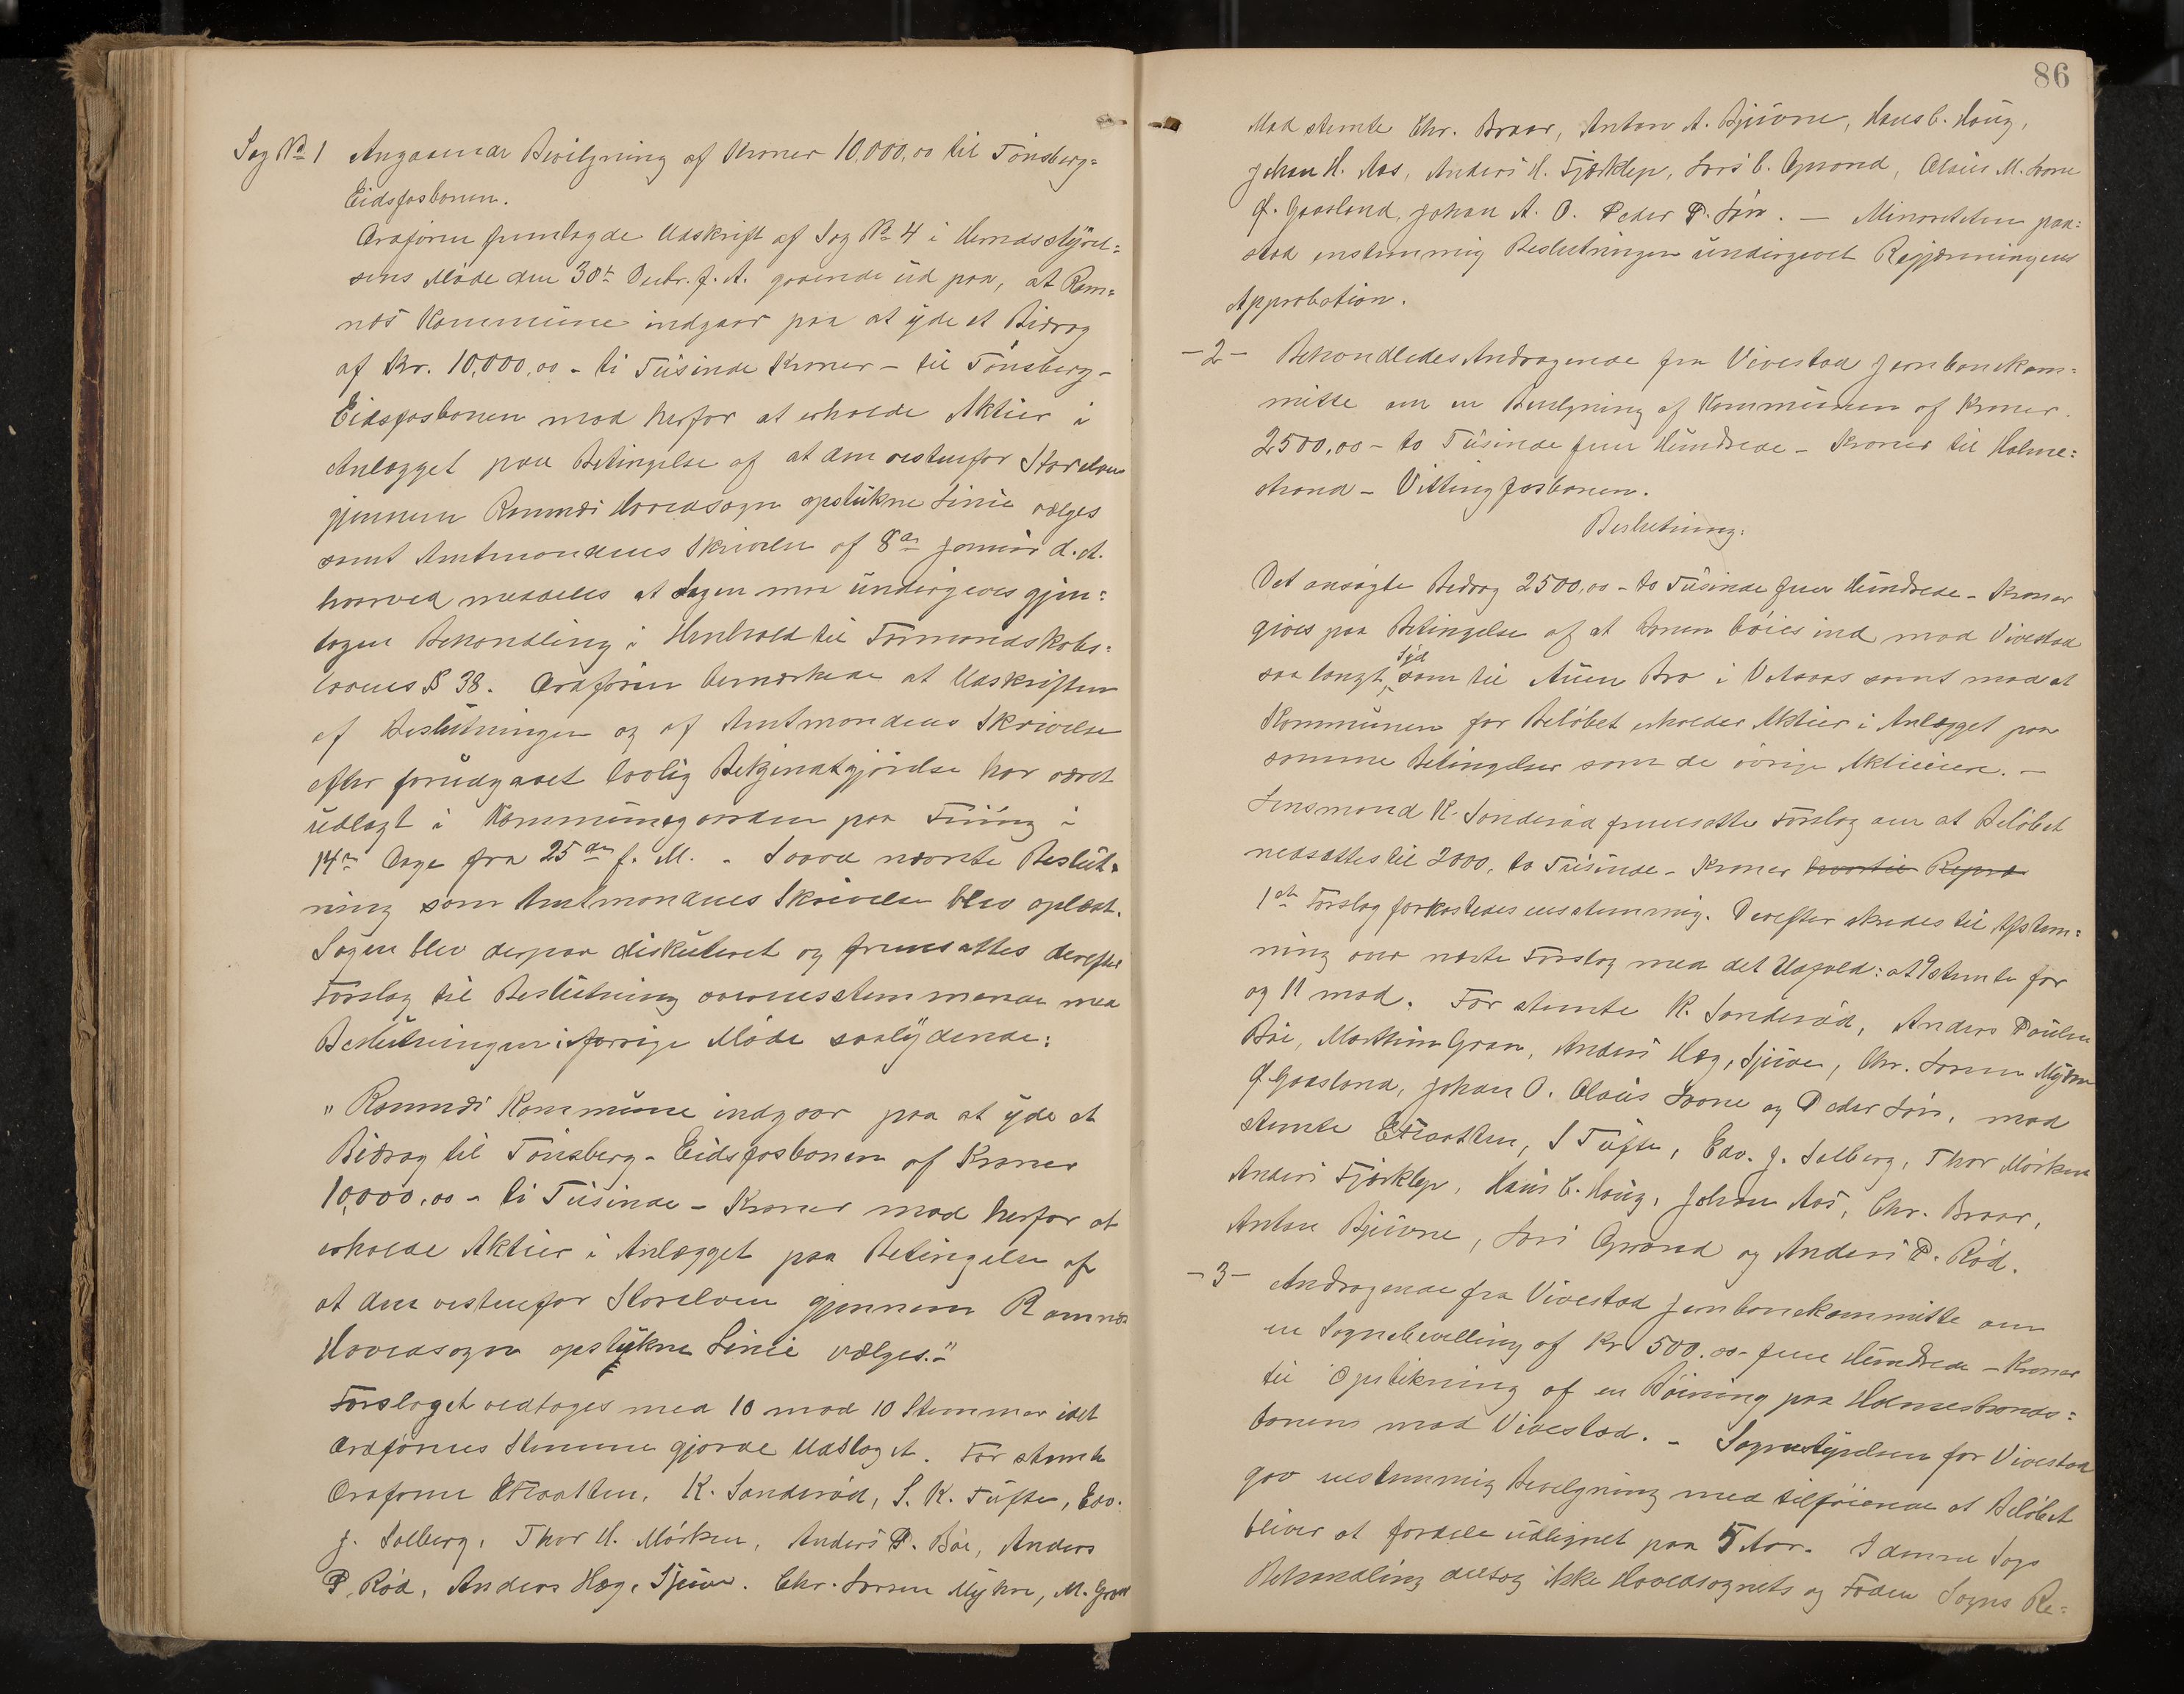 Sag № 1 Angaaende Bevilgning af Kroner 10,000,00 til Tönsberg-
Eidsfosbanen.
Ordfören fremlagde Udskrift af Sag № 4 i Herredsstyrel-
sens Möde den 30te Decbr. f. A. gaaende ud paa, at Ram-
næs Kommune indgaar paa at yde et Bidrag
af Kr. 10,000,00 - ti Tusinde Kroner - til Tönsberg-
Eidsfosbanen mod herfor at erholde Aktier i
Anlægget paa Betingelse af at den vestenfor Storelven
gjennem Ramnæs Hovedsogn opstukne Linie vælges
samt Amtmandens Skrivelse af 8de Januar d. A.
hvorved meddeles at Sagen maa undergives gjen-
tagen Behandling i Henhold til Formandskabs-
lovens § 38. Ordföreren bemærkede at Udskriften
af Beslutningen og af Amtmandens Skrivelse
efter forudgaaet lovlig Bekjendtgjörelse har været
udlagt i Kommunegaarden paa Fiung i
14en Dage fra 25de f. M. - Saavel nævnte Beslut-
ning som Amtmandens Skrivelse blev oplæst.
Sagen blev derpaa diskuteret og fremsattes derefter
Forslag til Beslutning overensstemmende med
Beslutningen i forrige Möde saalydende:
"Ramnæs Kommune indgaar paa at yde et
Bidrag til Tönsberg-Eidsfosbanen af Kroner
10,000,00 - ti Tusinde - Kroner mod herfor at
erholde Aktier i Anlægget paa Betingelse af
at den vestenfor Storelven gjennem Ramnæs
Hovedsogn opstukne Linie vælges."
Forslaget vedtoges med 10 mod 10 Stemmer idet
Ordförerens Stemme gjorde Udslaget. For stemte
Ordförer K. Sanderöd, S. K. Tufte, Edv.
J. Solberg, Thor H. Mörken, Anders P. Böe, Anders
P. Röd, Anders Hæg, Sjuve. Chr. Larsen Myhre, M. Gran
86
Mod stemte Chr. Braar, Anton A. Bjuvne, Hans C. Houg,
Johan H. Aas, Anders H. Fjærklep, Lars C. Gprand, Olaus M. Svane
G. Gaasland, Johan A. O. Peder P. Lön. — Minoriteten paa-
stod enstemmig Beslutningen undergivet Regjeringens
Approbation.
-2- Behandledes Andragende fra Vivestad Jernbanekom-
mitte om en Bevilgning af Kommunen af Kroner
2500,00 - to Tusinde fem Hundrede - Kroner til Holme-
strand - Vittingfosbanen.
Beslutning:
Det ansögte Bidrag 2500,00 - to Tusinde fem Hundrede - Kroner
gives paa Betingelse af at Banen böies ind mod Vivestad
saa langt Syd som til Auen Bro i Vetsaas samt mod at
Kommunen for Belöbet erholder Aktier i Anlægget paa
samme Betingelser som de övrige Aktieiere. —
Lensmand K. Sanderöd fremsatte Forslag om at Belöbet
nedsættes til 2000, to Tusinde - Kroner hvortil Repræ
1ste Forslag forkastedes enstemmig. Derefter skredes til Afstem-
ning over næste Forslag med det Udfald: at 9 stemte for
og 11 mod. For stemte K. Sanderöd, Anders Paulsen
Böe, Marthin Gran, Anders Hæg, Sjuve, Chr. Larsen Myhre
G. Gaasland, Johan O. Olaus Svane og Peder Lön, mod
stemte S Tufte, Edv. J. Solberg, Thor Mörken
Anders Fjærklep, Hans C. Houg, Johan Aas, Chr. Braar,
Anton Bjuvne, Lars Gprand og Anders P. Röd.
-3- Andragende fra Vivestad Jernbanekommitte om
en Sognebevilling af Kr 500.00 - fem Hundrede - Kroner
til Opstikning af en Böining paa Holmestrands-
banen mod Vivestad. - Sognestyrelsen for Vivestad
gav enstemmig Bevilgning med tilföiende at Belöbet
bliver at fordele udlignet paa 5 Aar. I denne Sags
Behandling deltog ikke Hovedsognets og Fodens Sogns Re-